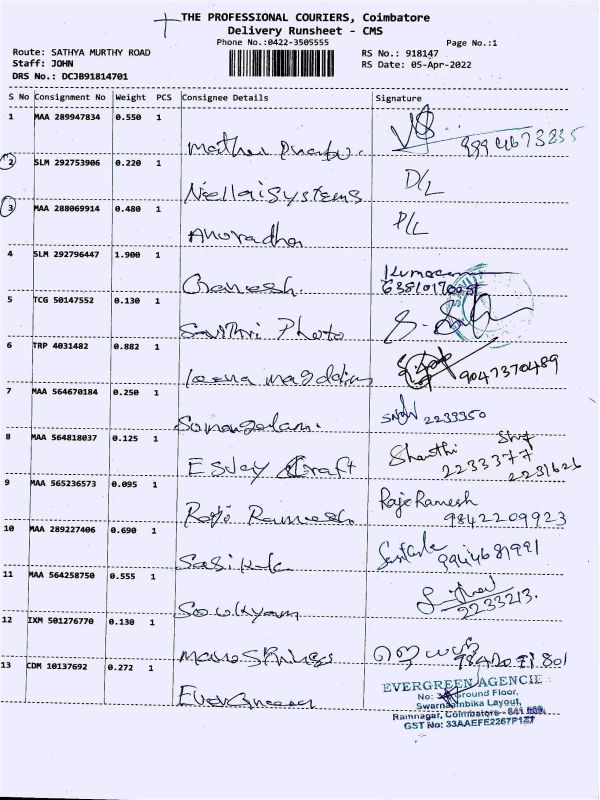 THE PROFESSIONAL COURIERS, Coimbatore
Delivery Runsheet - CMS
Phone No.:0422-3505555
Page No.:1
Route: SATHYA MURTHY ROAD
RS No.: 918147
Staff: JOHN
RS Date: 05-Apr-2022
DRS No.: DCJB91814701
S No Consignment No Weight PCS Consignee Details Signature
1 MAA 289947834 0.550 1
2 SLM 292753906 0.220 1
Nellai Systems D/L
3 MAA 288069914 0.480 1
Anuradha P/L
4 SLM 292796447 1.900 1
Ganesh.
5 TCG 50147552 0.130 1
Photo
6 TRP 4031482 0.882 1
9047370489
7 MAA 564670184 0.250 1
2233350
8 MAA 564818037 0.125 1
Esjay Craft Shanthi
2233377
9 MAA 565236573 0.095 1
Raje Ramesh Raje Ramesh
9842209923
10 MAA 289227406 0.690 1
Sasikala
11 MAA 564258750 0.555 1
Sowkyam
2233213.
12 IXM 501276770 0.130 1
Mano Springs
13 CDM 10137692 0.272 1
Evergreen
EVERGREEN AGENCIE
Ground Floor,
Swarnaambika Layout,
Ramnagar, Coimbatore -
GST No: 33AAEFE2267P1Z1